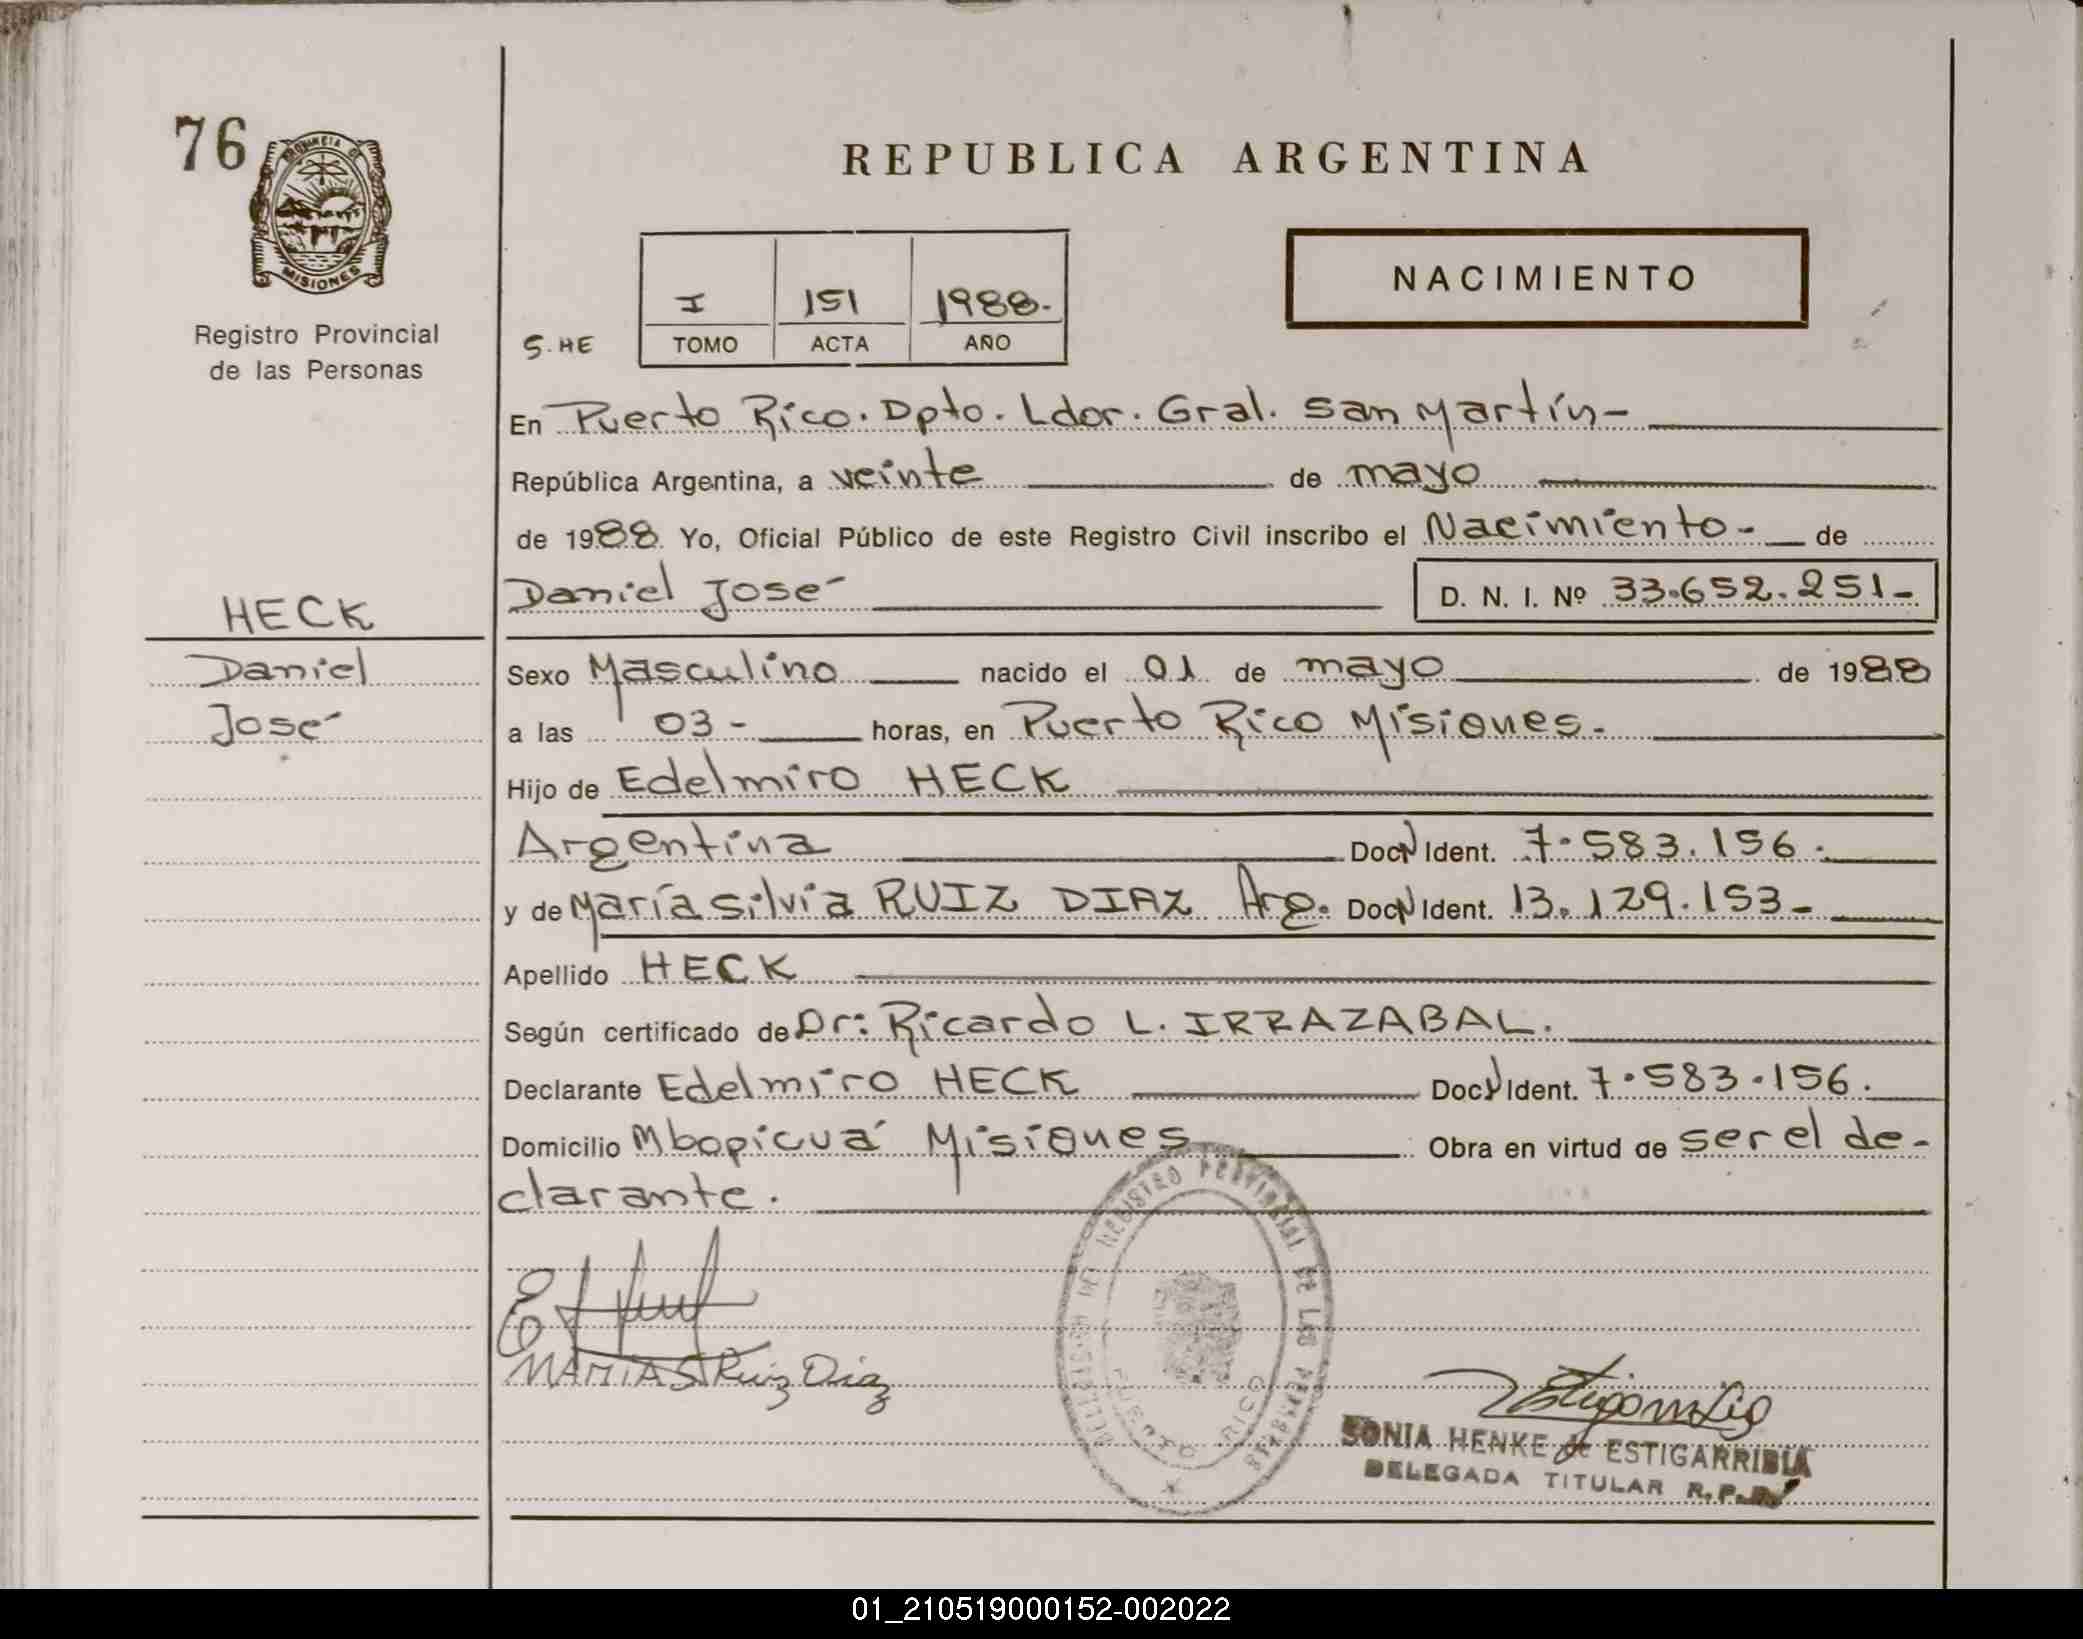 76
PROVINCIA DE
MISIONES
Registro Provincial
de las Personas
HECK
Daniel
José
REPUBLICA ARGENTINA
NACIMIENTO
I 151 1988.
S.HE TOMO ACTA AÑO
En Puerto Rico. Dpto. Ldor. Gral. San Martín-
República Argentina, a veinte de mayo
de 1988 Yo, Oficial Público de este Registro Civil inscribo el Nacimiento- de
Daniel José D. N. I. Nº 33.652.251-
Sexo Masculino nacido el 01 de mayo de 1988
a las 03- horas, en Puerto Rico Misiones.
Hijo de Edelmiro HECK
Argentina Doc. Ident. 7.583.156.
y de María Silvia RUIZ DIAZ Arg. Doc. Ident. 13.129.153-
Apellido HECK
Según certificado de Dr: Ricardo L. IRRAZABAL.
Declarante Edelmiro HECK Doc. Ident. 7.583.156.
Domicilio Mbopicuá Misiones Obra en virtud de ser el de-
clarante.
REGISTRO PROVINCIAL DE LAS PERSONAS
PUERTO RICO
MARIA S Ruiz Diaz
SONIA HENKE de ESTIGARRIBIA
DELEGADA TITULAR R.P.P.
01_210519000152-002022